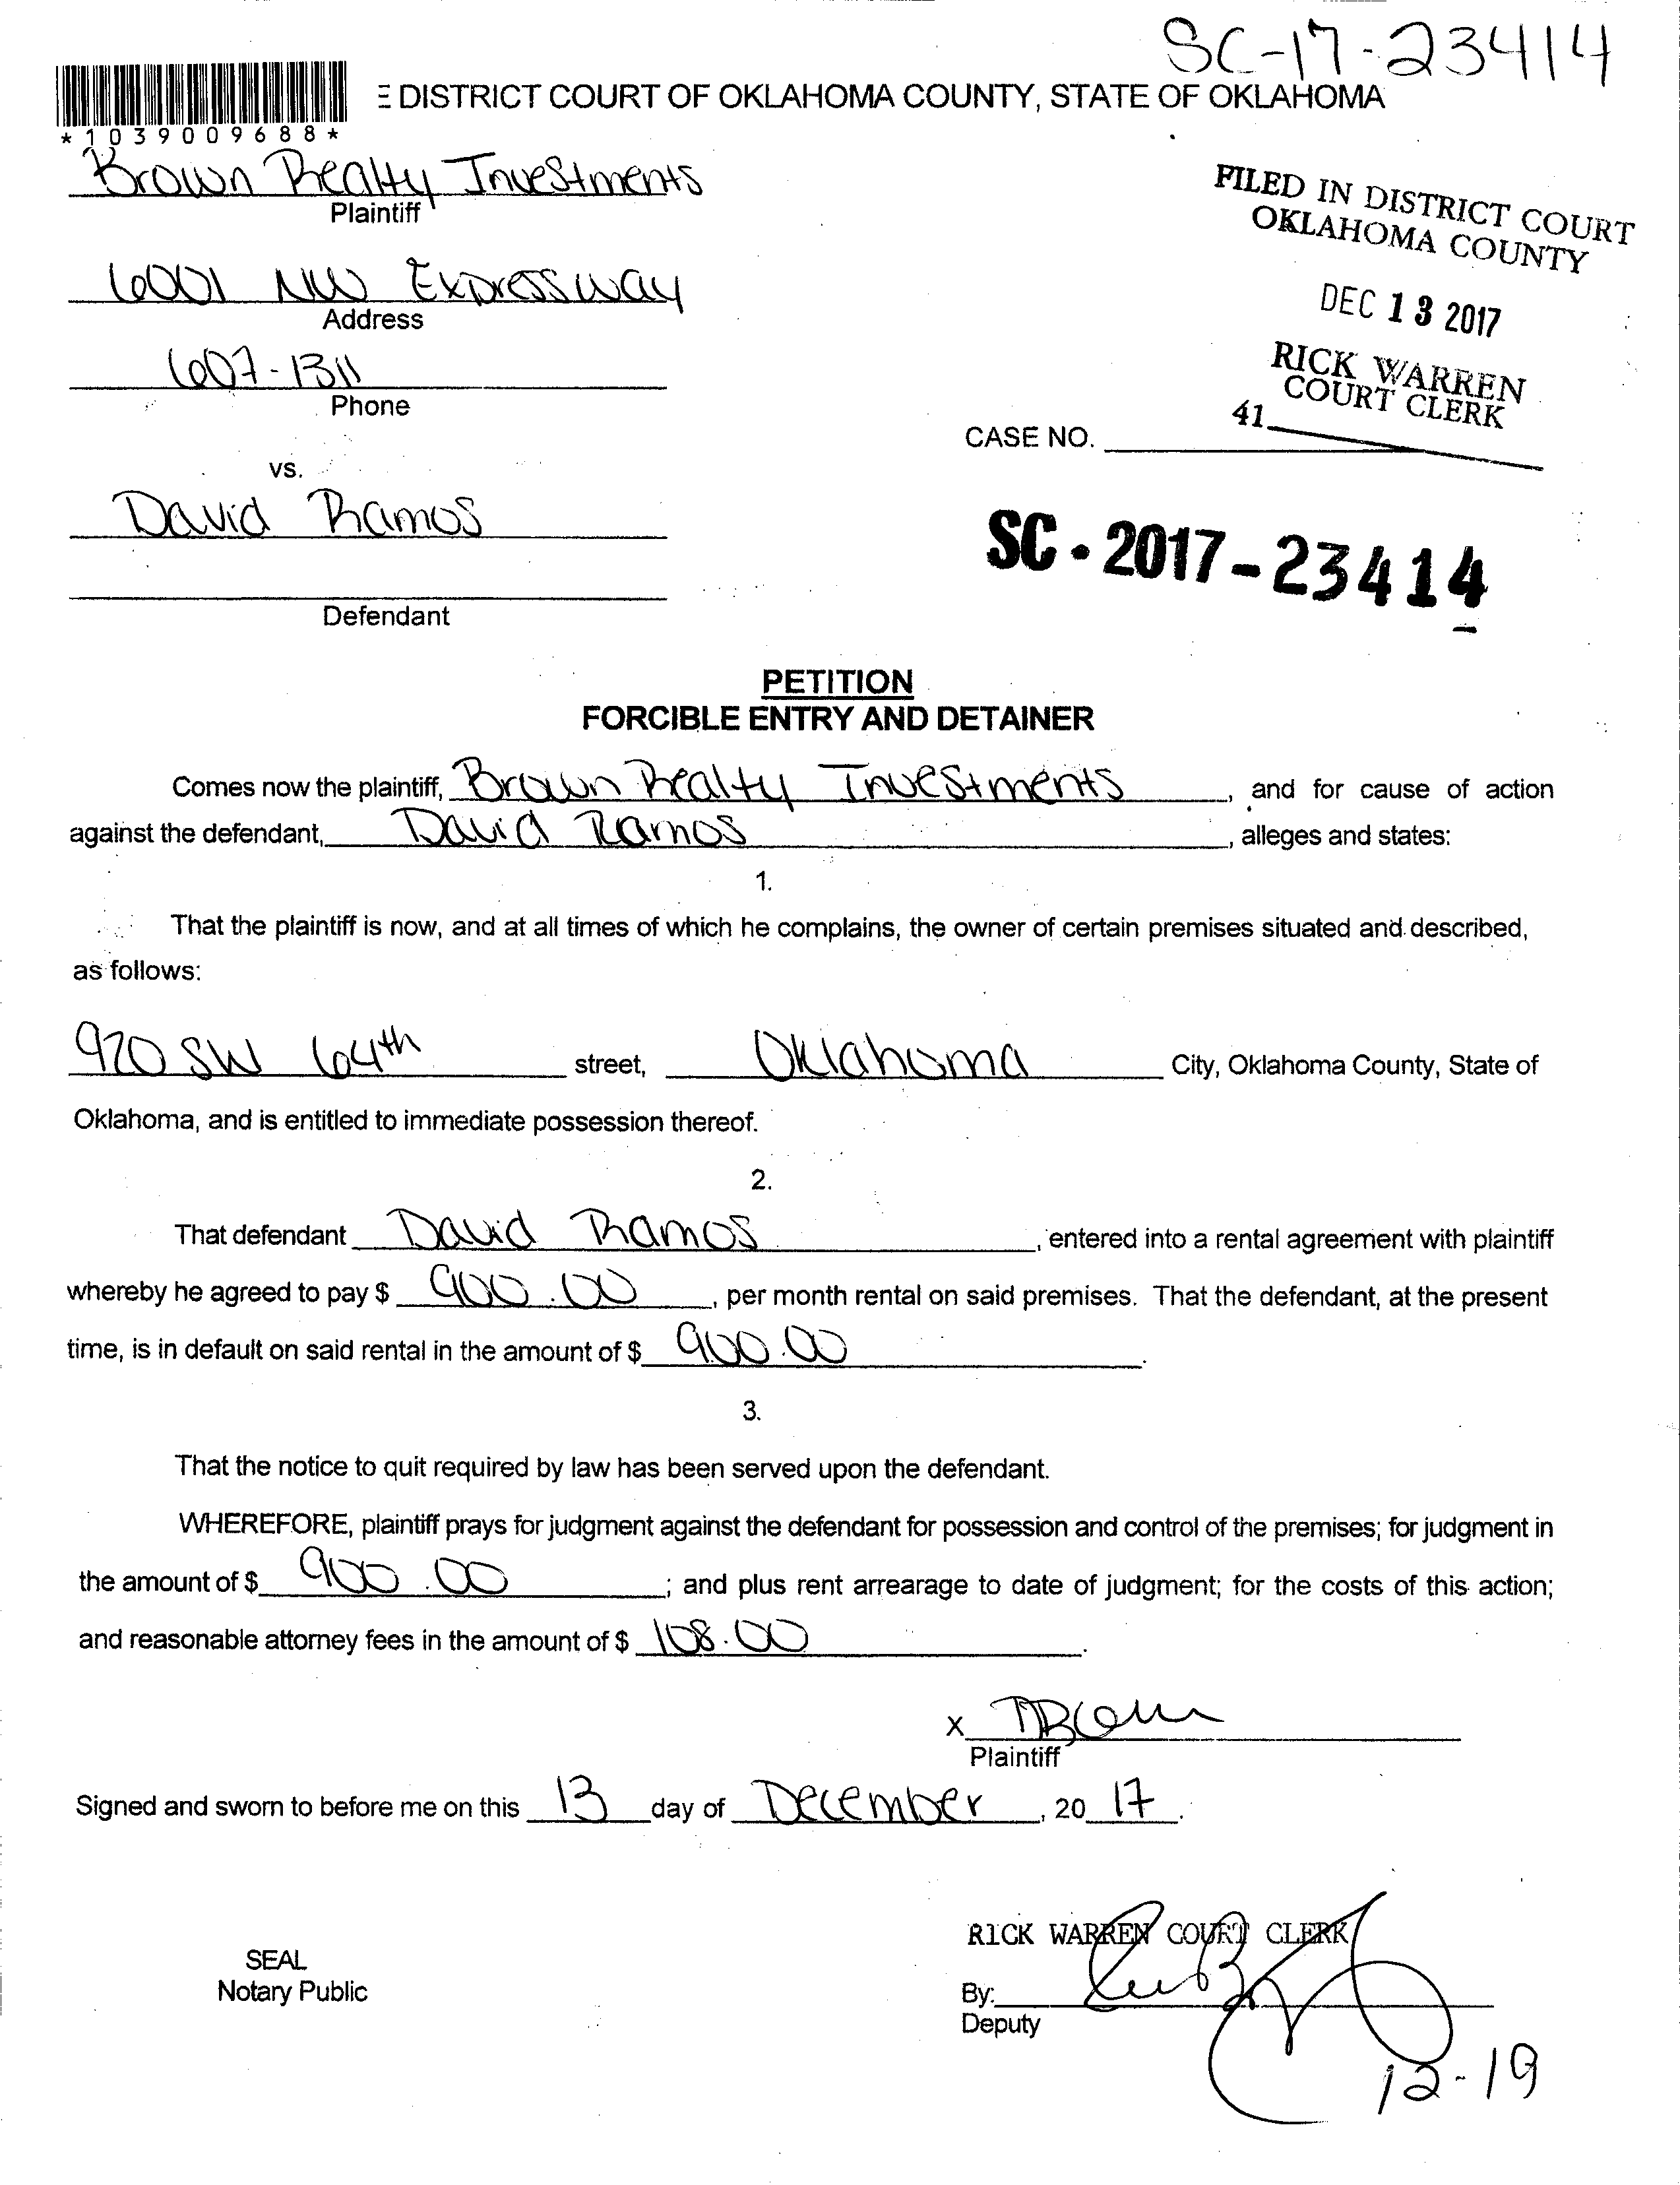 SC-17-23414
E DISTRICT COURT OF OKLAHOMA COUNTY, STATE OF OKLAHOMA
*1039009688*
Brown Realty Investments
Plaintiff
FILED IN DISTRICT COURT
OKLAHOMA COUNTY
6001 NW Expressway
Address
DEC 13 2017
607-1311
Phone
RICK WARREN
COURT CLERK
41
CASE NO.
vs.
David Ramos
SC-2017-23414
Defendant
PETITION
FORCIBLE ENTRY AND DETAINER
Comes now the plaintiff, Brown Realty Investments, and for cause of action
against the defendant, David Ramos, alleges and states:
1.
That the plaintiff is now, and at all times of which he complains, the owner of certain premises situated and described,
as follows:
920 SW 64th street, Oklahoma City, Oklahoma County, State of
Oklahoma, and is entitled to immediate possession thereof.
2.
That defendant David Ramos, entered into a rental agreement with plaintiff
whereby he agreed to pay $ 900.00, per month rental on said premises. That the defendant, at the present
time, is in default on said rental in the amount of $ 900.00.
3.
That the notice to quit required by law has been served upon the defendant.
WHEREFORE, plaintiff prays for judgment against the defendant for possession and control of the premises; for judgment in
the amount of $ 900.00; and plus rent arrearage to date of judgment; for the costs of this action;
and reasonable attorney fees in the amount of $ 108.00.
X
Plaintiff
Signed and sworn to before me on this 13 day of December, 20 17.
RICK WARREN COURT CLERK
SEAL
Notary Public
By:
Deputy
12-19